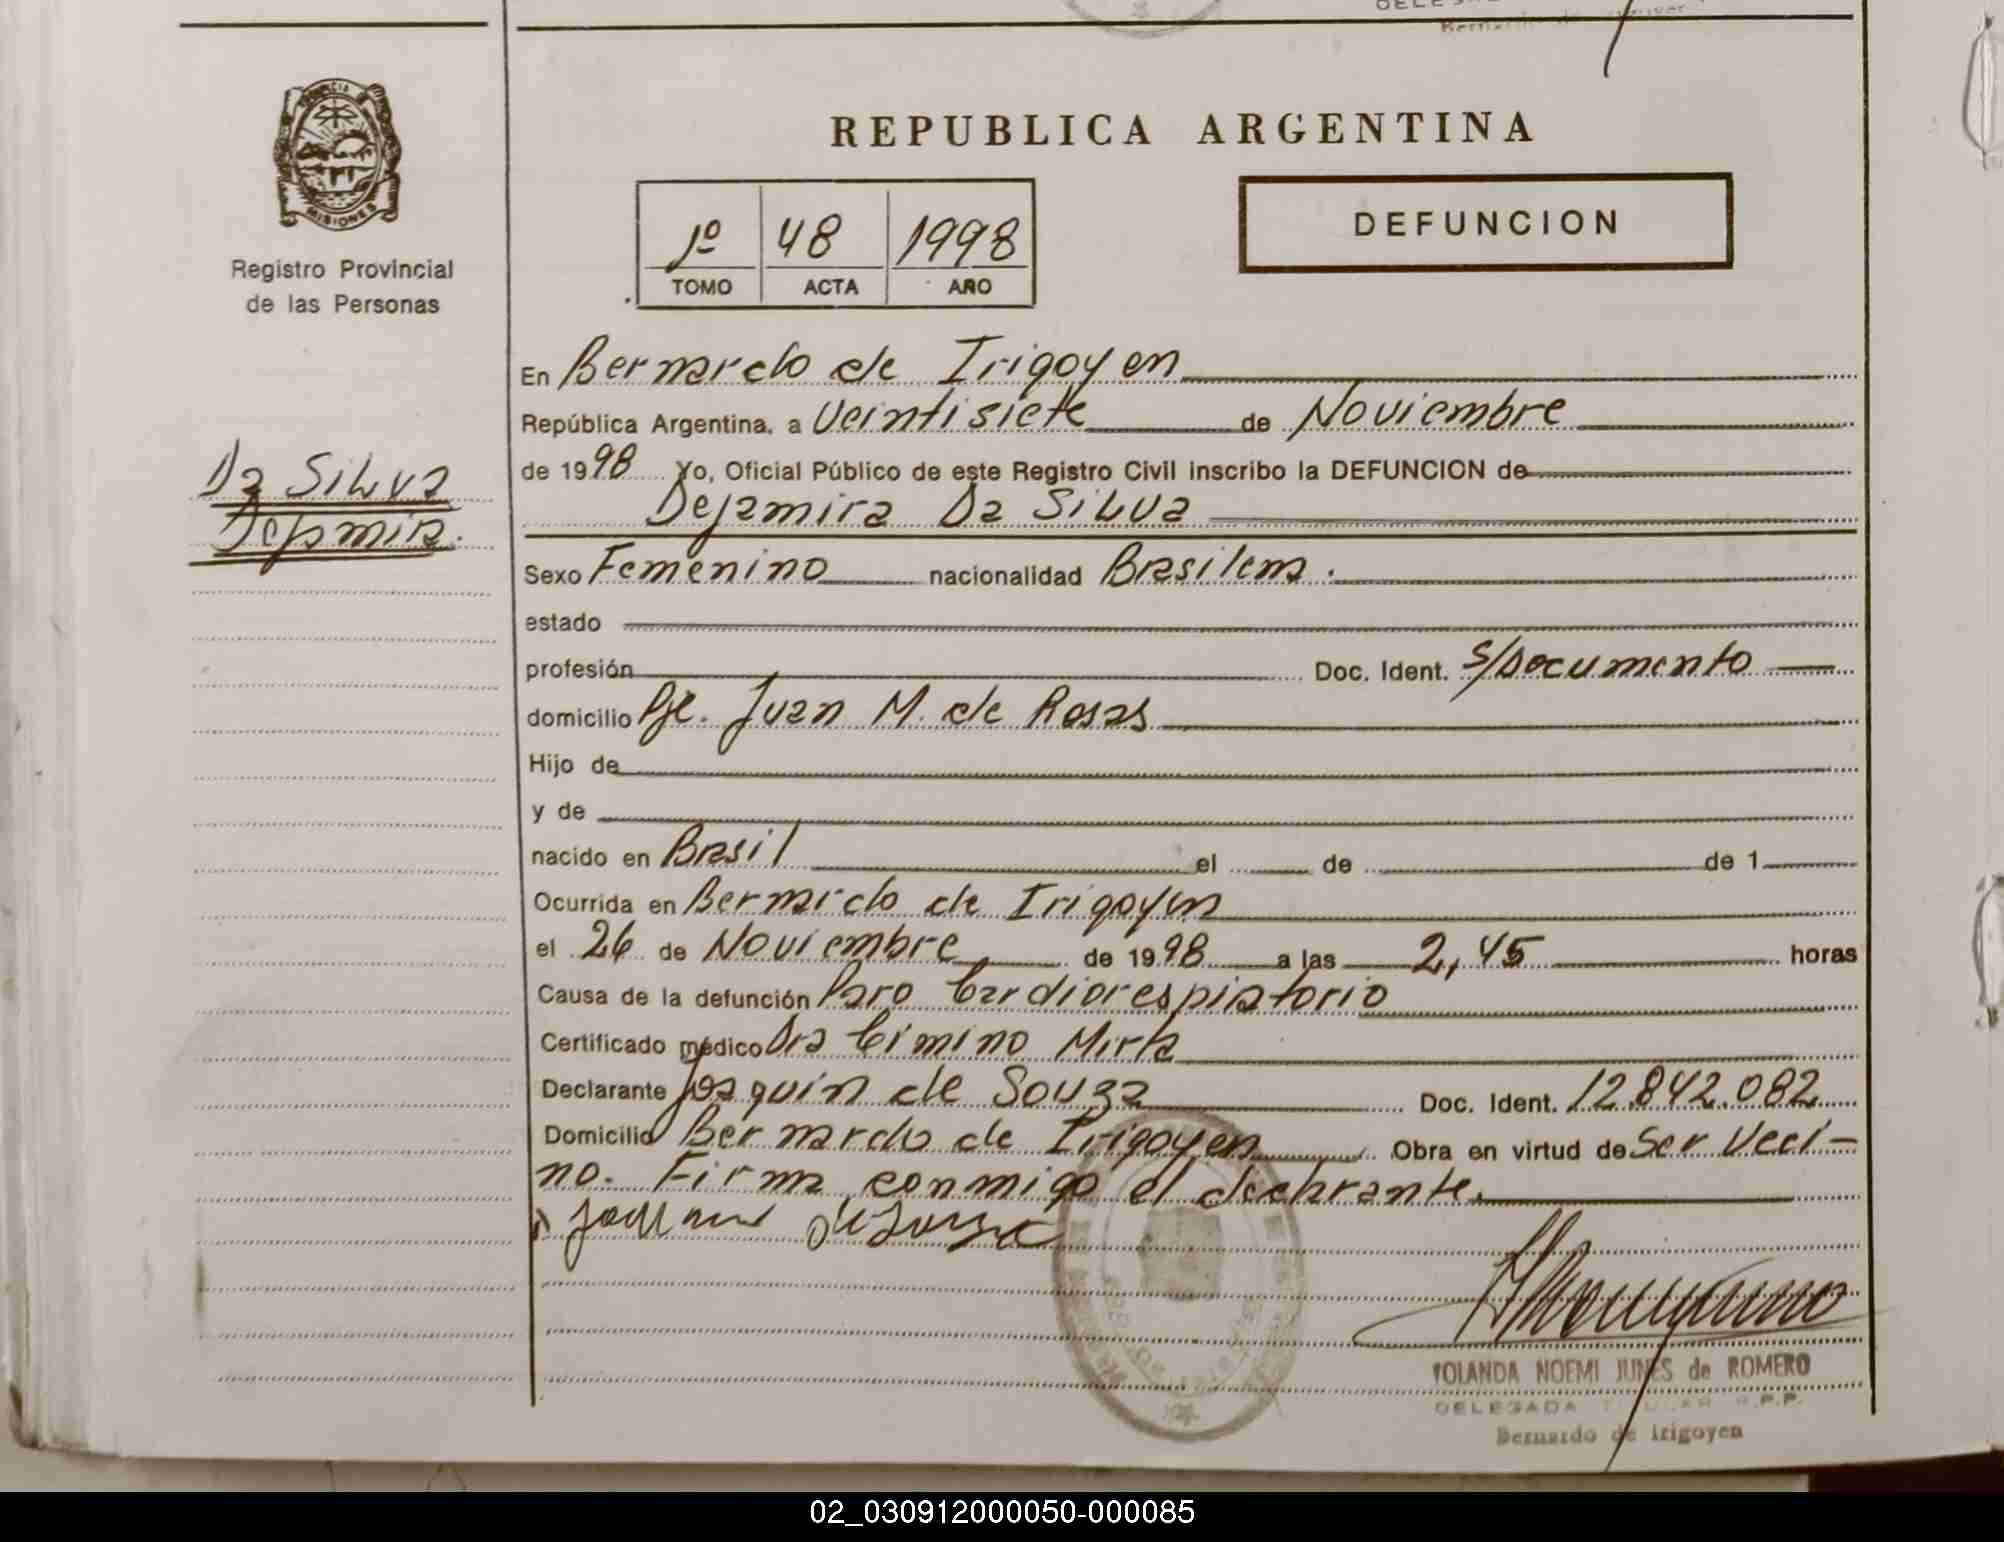 REPUBLICA ARGENTINA
PROVINCIA DE
MISIONES
Registro Provincial
de las Personas
1º 48 1998
TOMO ACTA AÑO
DEFUNCION
Da Silva
Dejamira.
En Bernardo de Irigoyen
República Argentina, a Veintisiete de Noviembre
de 1998 Yo, Oficial Público de este Registro Civil inscribo la DEFUNCION de
Dejamira Da Silva
Sexo Femenino nacionalidad Brasilena.
estado
profesión Doc. Ident. S/Documento
domicilio Pje. Juan M. de Rosas
Hijo de
y de
nacido en Brasil el de de 1
Ocurrida en Bernardo de Irigoyen
el 26 de Noviembre de 1998 a las 2,45 horas
Causa de la defunción Paro Cardiorespiratorio
Certificado médico Dra Cimino Mirta
Declarante Joaquin de Souza Doc. Ident. 12.842.082
Domicilio Bernardo de Irigoyen Obra en virtud de Ser Veci-
no. Firma conmigo el declarante.
YOLANDA NOEMI JUNES de ROMERO
DELEGADA TITULAR R.P.P.
Bernardo de Irigoyen
02_030912000050-000085